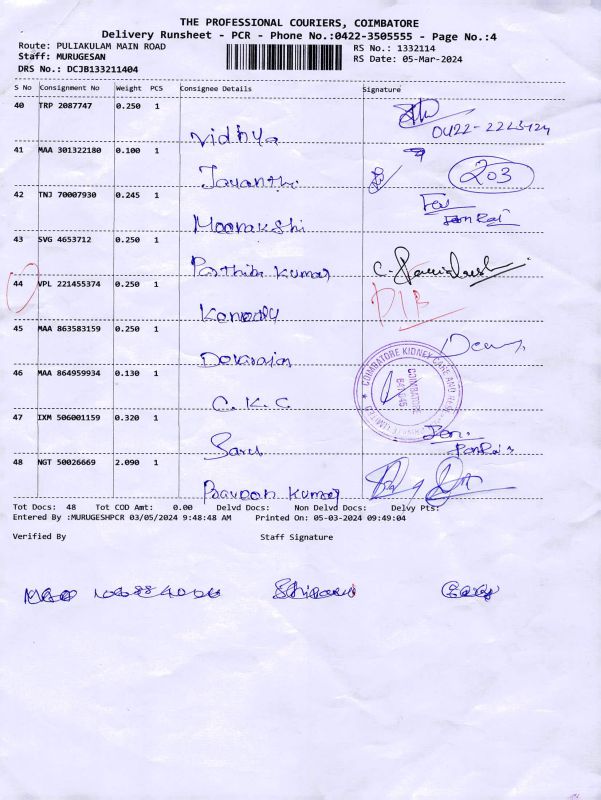 THE PROFESSIONAL COURIERS, COIMBATORE
Delivery Runsheet - PCR - Phone No.:0422-3505555 - Page No.:4
Route: PULIAKULAM MAIN ROAD
Staff: MURUGESAN
DRS No.: DCJB133211404
RS No.: 1332114
RS Date: 05-Mar-2024
S No Consignment No Weight PCS Consignee Details Signature
40 TRP 2087747 0.250 1
Vidhya
41 MAA 301322180 0.100 1
Jayanthi 203
42 TNJ 70007930 0.245 1
Moonakshi
43 SVG 4653712 0.250 1
Parthiba Kumar
44 VPL 221455374 0.250 1
Kennedy
45 MAA 863583159 0.250 1
Devarajan
46 MAA 864959934 0.130 1
C. K. C.
COIMBATORE KIDNEY CARE AND
COIMBATORE
47 IXM 506001159 0.320 1
48 NGT 50026669 2.090 1
Praveen Kumar
Tot Docs: 48 Tot COD Amt: 0.00 Delvd Docs: Non Delvd Docs: Delvy Pts:
Entered By :MURUGESHPCR 03/05/2024 9:48:48 AM Printed On: 05-03-2024 09:49:04
Verified By Staff Signature